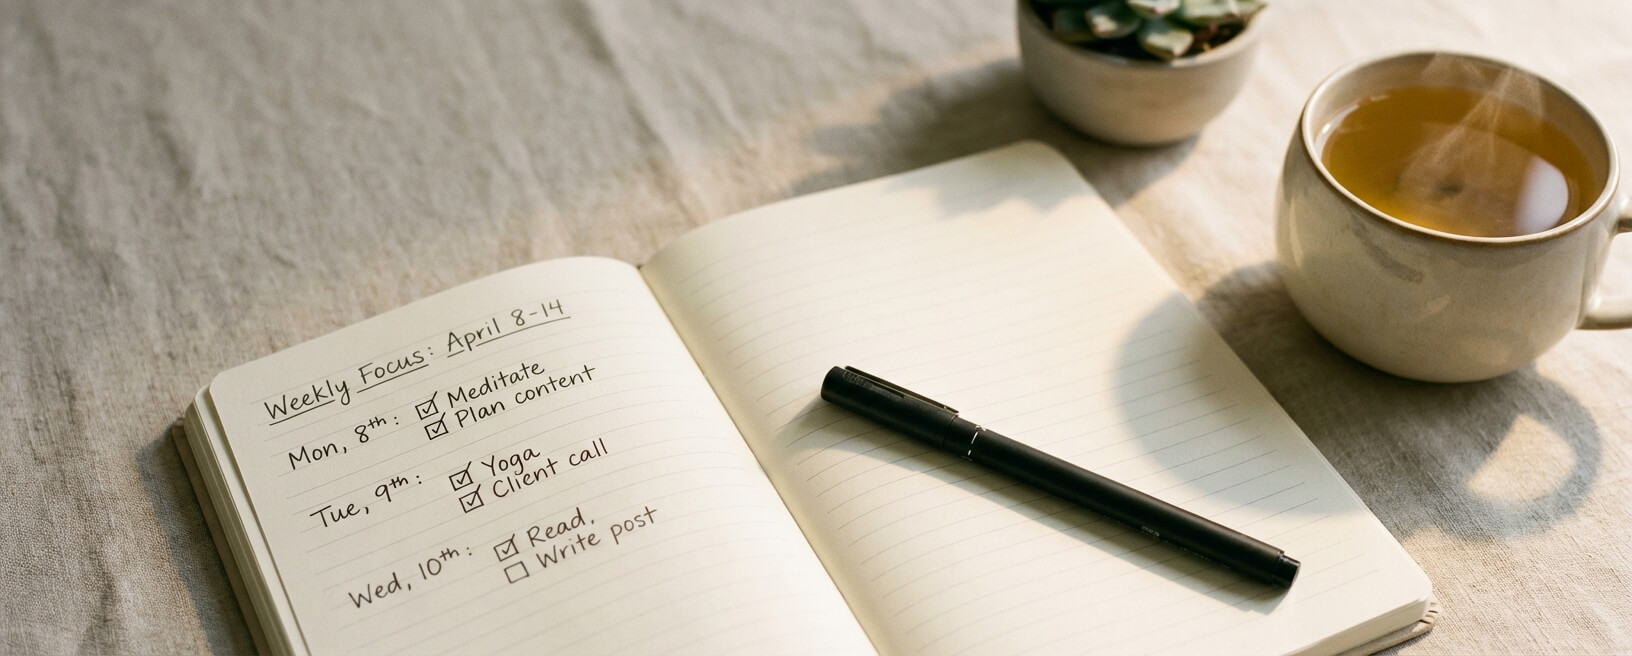 Weekly Focus: April 8-14
Mon, 8th: ☑ Meditate
☑ Plan content
Tue, 9th: ☑ Yoga
☑ Client call
Wed, 10th: ☑ Read,
☐ Write post